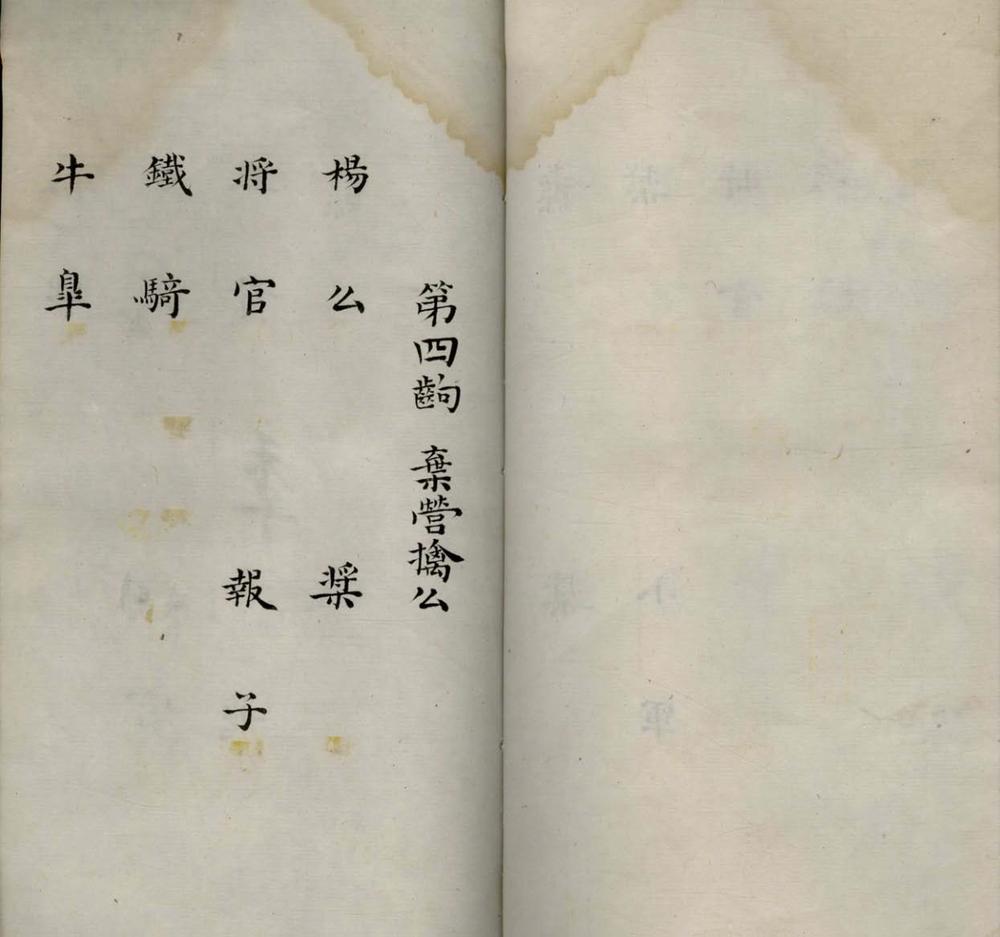 第四齣 棄營擒么
楊么 槳
将官 報子
鐵騎
牛臯